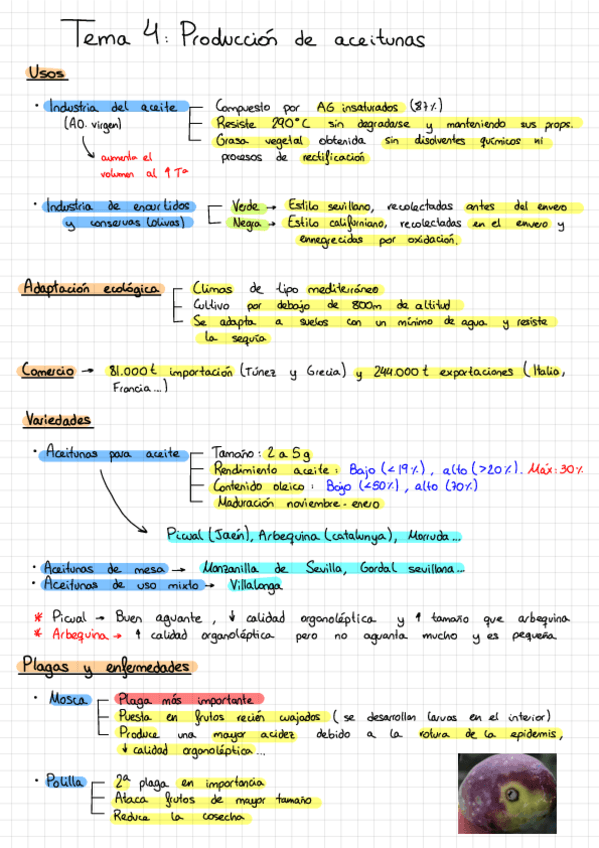 Tema 4: Producción de aceitunas
Usos
· Industria del aceite
(AO. virgen)
aumenta el
volumen al ↑ Tª
Compuesto por AG insaturados (87%)
Resiste 290°C sin degradarse y manteniendo sus props.
Grasa vegetal obtenida sin disolventes químicos ni
procesos de rectificación
· Industria de encurtidos
y conservas (olivas)
Verde → Estilo sevillano, recolectadas antes del envero
Negra → Estilo californiano, recolectadas en el envero y
ennegrecidas por oxidación.
Adaptación ecológica
Climas de tipo mediterráneo
Cultivo por debajo de 800m de altitud
Se adapta a suelos con un mínimo de agua y resiste
la sequía
Comercio → 81.000t importación (Túnez y Grecia) y 244.000t exportaciones (Italia,
Francia...)
Variedades
· Aceitunas para aceite
Tamaño: 2 a 5g
Rendimiento aceite: Bajo (<19%), alto (>20%). Máx: 30%
Contenido oleico: Bajo (<50%), alto (70%)
Maduración noviembre - enero
Picual (Jaén), Arbequina (catalunya), Morruda...
· Aceitunas de mesa → Manzanilla de Sevilla, Gordal sevillana...
· Aceitunas de uso mixto → Villalonga
* Picual → Buen aguante, ↓ calidad organoléptica y ↑ tamaño que arbequina
* Arbequina → ↑ calidad organoléptica pero no aguanta mucho y es pequeña
Plagas y enfermedades
· Mosca
Plaga más importante
Puesta en frutos recién cuajados (se desarrollan larvas en el interior)
Produce una mayor acidez debido a la rotura de la epidemis,
↓ calidad organoléptica...
· Polilla
2ª plaga en importancia
Ataca frutos de mayor tamaño
Reduce la cosecha